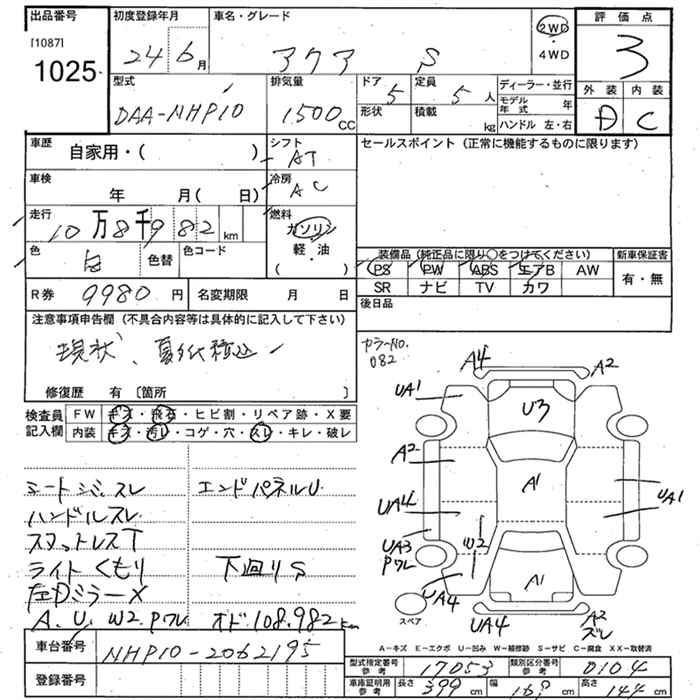 出品番号
[1087]
1025
初度登録年月
24年6月
車名・グレード
アクア S
2WD
・
4WD
評価点
3
外装 内装
D C
型式
DAA-NHP10
排気量
1500 CC
ドア
5
形状
定員
5人
積載
kg
ディーラー・並行
モデル年式 年
ハンドル 左・右
車歴
自家用・( )
シフト
AT
冷房
AC
車検
年 月( 日)
走行
10万8千982 km
燃料
ガソリン
軽・油
( ・ )
色
白
色替
色コード
セールスポイント (正常に機能するものに限ります)
装備品 (純正品に限り○をつけてください)
PS PW ABS エアB AW
SR ナビ TV カワ
新車保証書
有・無
後日品
R券 9980 円
名変期限 月 日
注意事項申告欄 (不具合内容等は具体的に記入して下さい)
現状、夏タイ積込
修復歴 有 〔箇所 〕
検査員記入欄
FW キズ・飛石・ヒビ割・リペア跡・X要
内装 キズ・汚レ・コゲ・穴・スレ・キレ・破レ
シートシミスレ
エンドパネルU
ハンドルスレ
スタットレスT
ライトくもり
下廻りS
左DミラーX
A.U.W2.Pワレ
オド108.982km
車台番号
NHP10-2062195
登録番号
カラーNo.
082
A4
A2
UA1
U3
A2
A1
UA4
UA1
UA3
Pワレ
W2
UA4
A1
UA4
A2
ズレ
スペア
A-キズ E-エクボ U-凹み W-補修跡 S-サビ C-腐食 XX-取替済
型式指定番号 参考
17053
類別区分番号 参考
0104
車庫証明用 参考
長さ 399 cm
幅 169 cm
高さ 144 cm